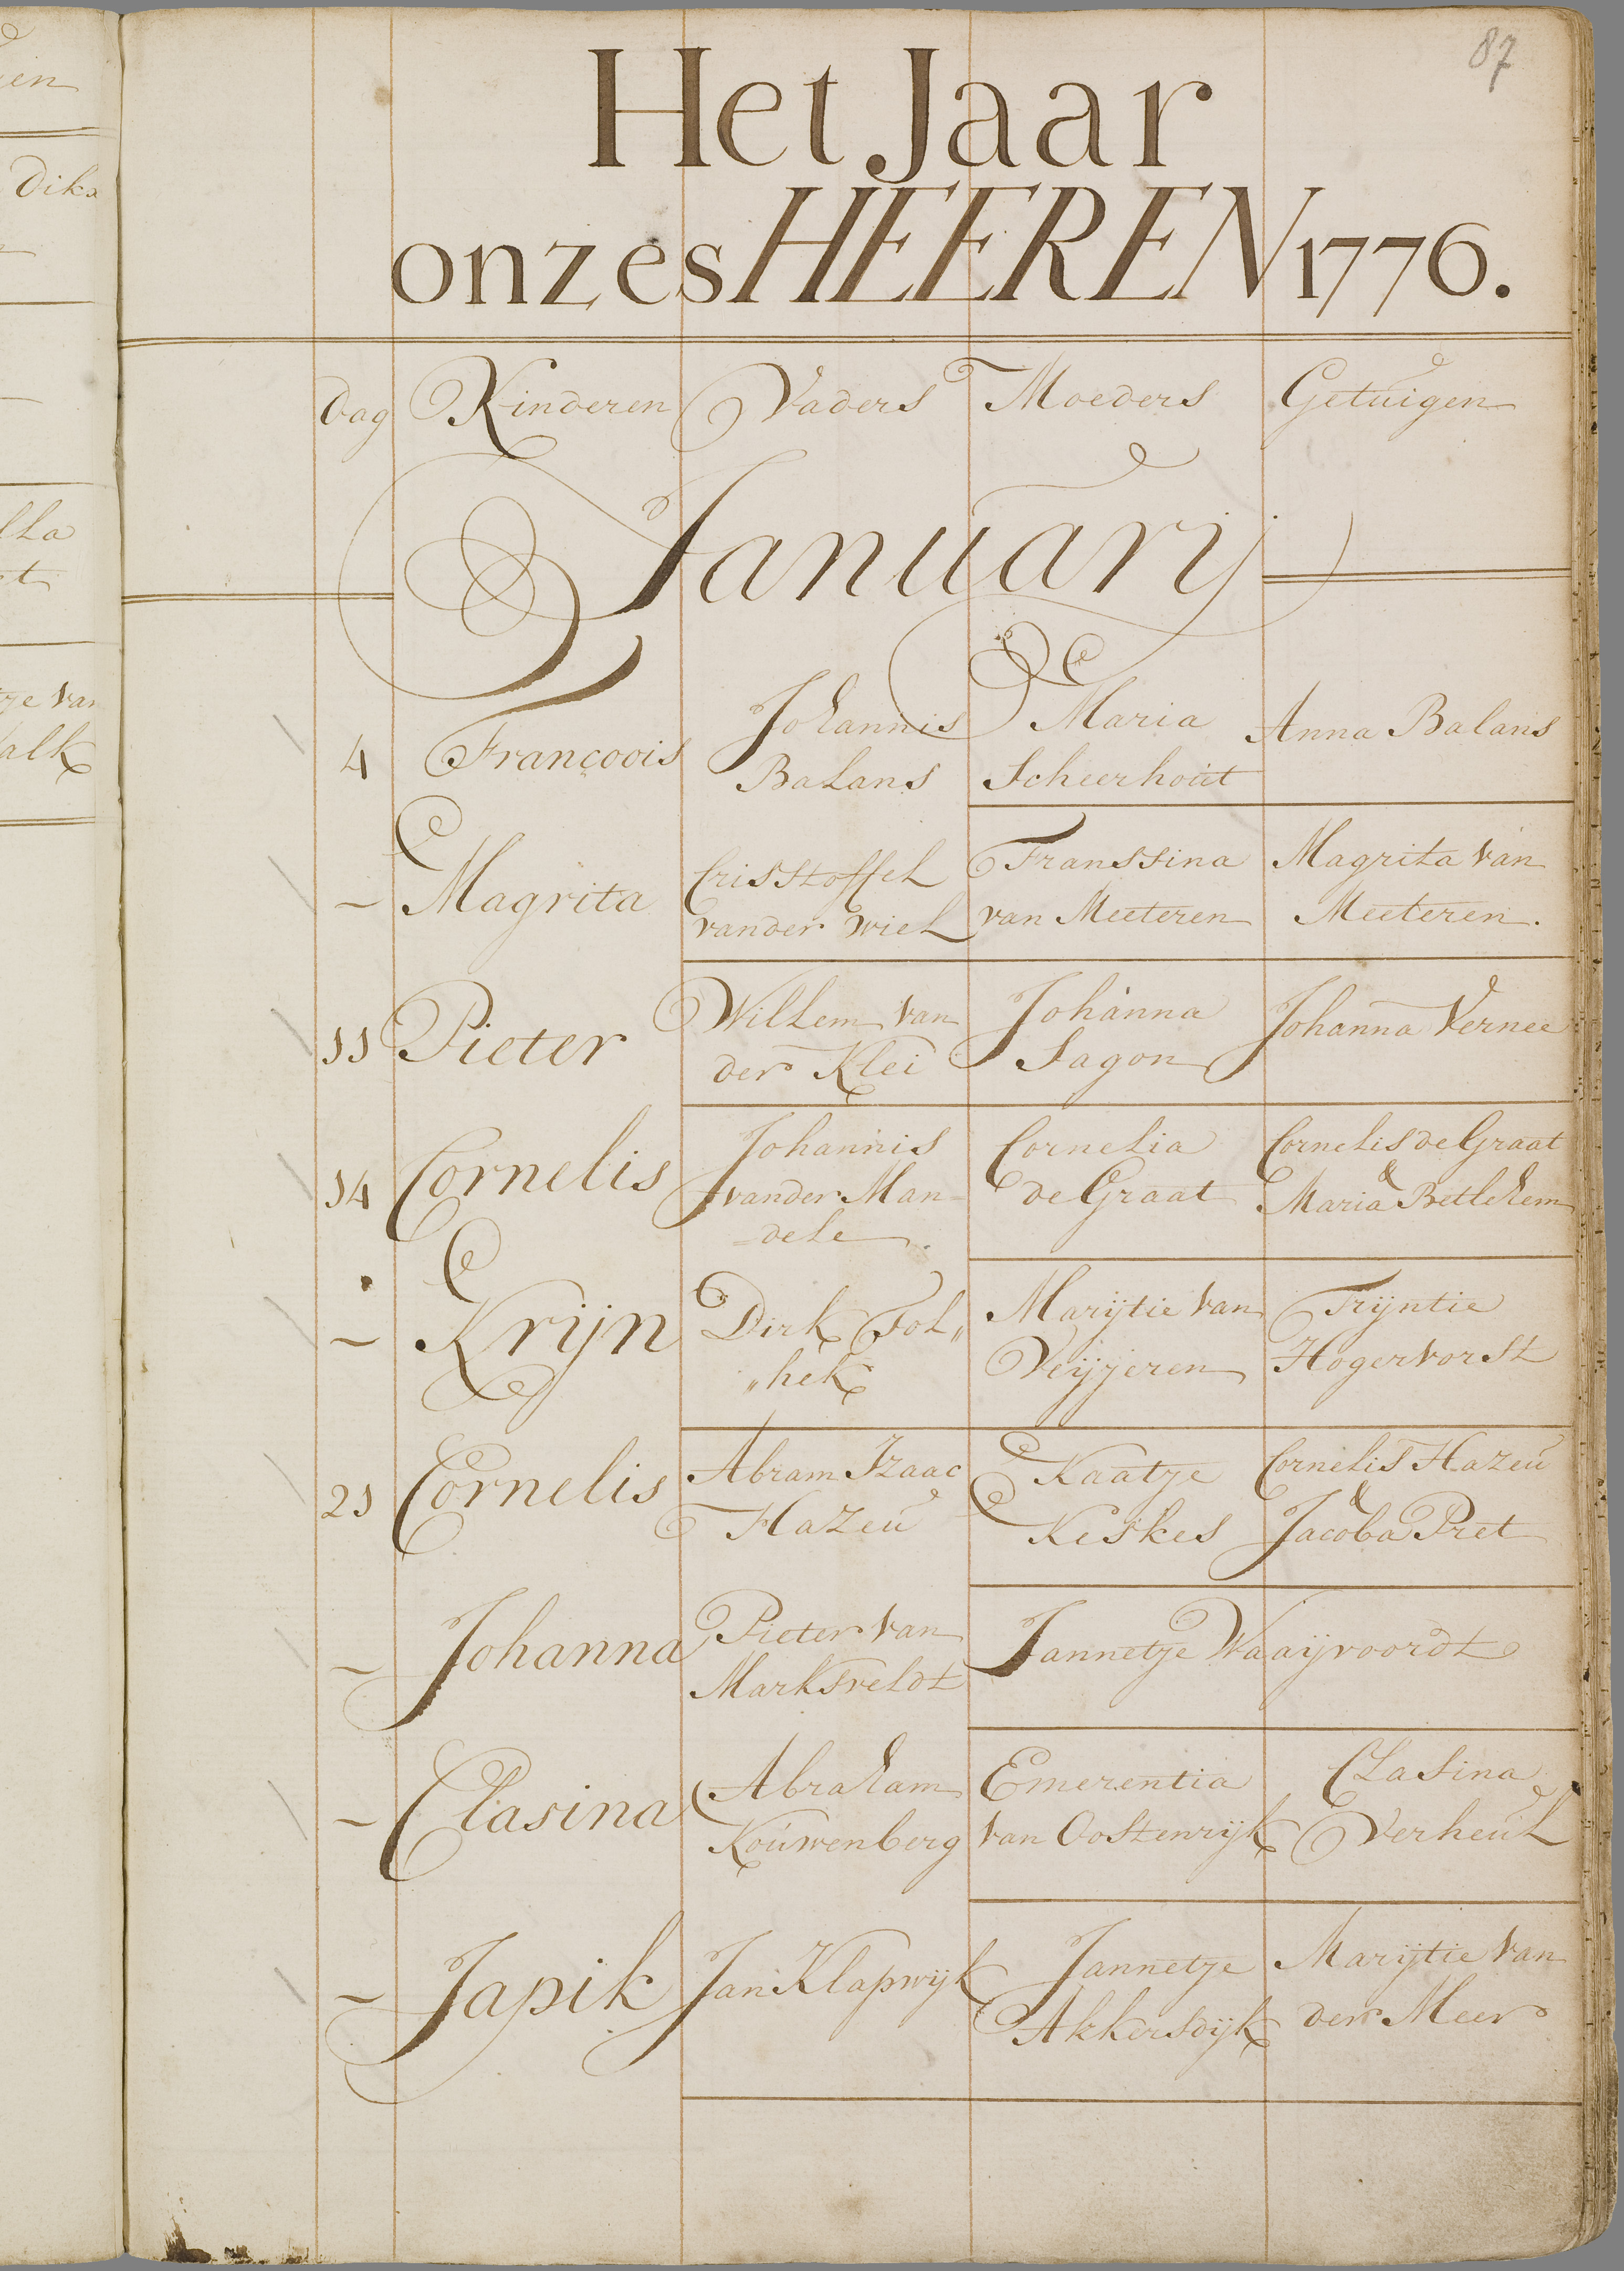 87
Het Jaar
onzes HEEREN 1776.
Dag Kinderen Vaders Moeders Getuigen
Januarij
4 Françoois Johannis Balans Maria Scheerhout Anna Balans
– Magrita Crisstoffel vander Wiel Franssina van Meeteren Magrita van Meeteren.
11 Pieter Willem van der Klei Johanna Sagon Johanna Vernee
14 Cornelis Johannis vander Man=dele Cornelia de Graat Cornelis de Graat & Maria Betlehem
– Krijn Dirk Tol„ „hek Marijtie van Veijjeren Trijntie Hogervorst
21 Cornelis Abram Izaac Hazeu Kaatje Keskes Cornelis Hazeu & Jacoba Pret
– Johanna Pieter van Marksveldt Jannetje Waaijvoordt
– Clasina Abraham Kouwenberg Emerentia van Oostenrijk Clasina Verheul
– Japik Jan Klapwijk Jannetje Akkersdijk Marijtie van der Meer